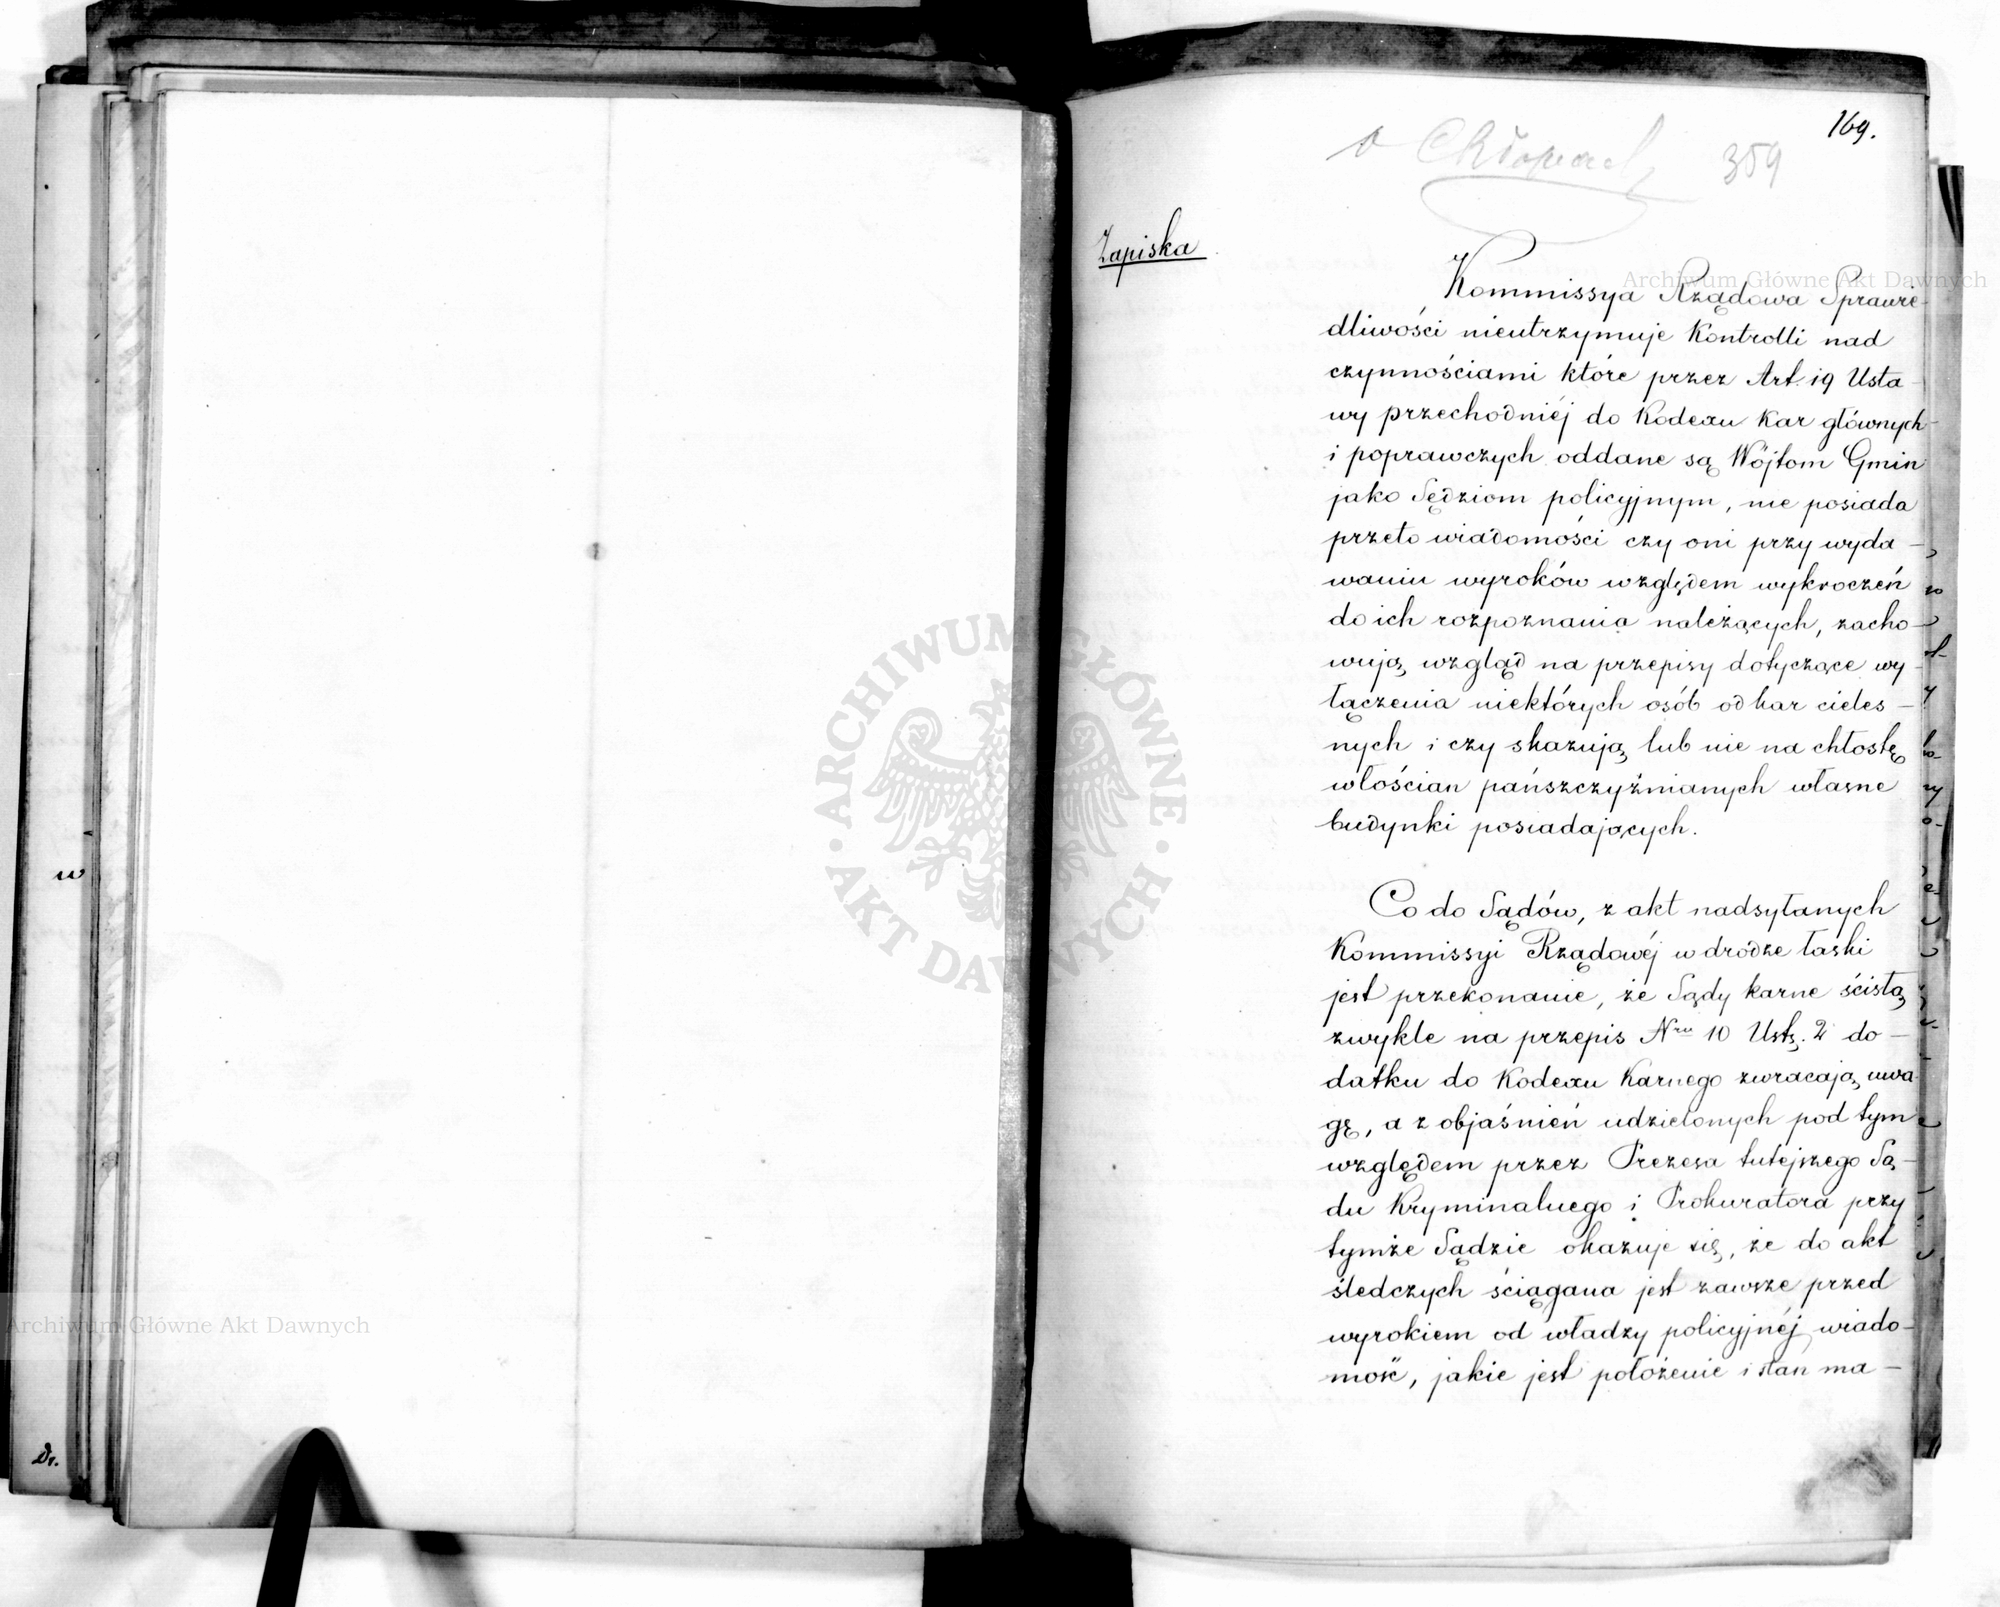 169.
o Chłopach 359
Zapiska
Kommissya Rządowa Sprawie-
dliwości nieutrzymuje Kontrolli nad
czynnościami które przez Art. 19 Usta-
wy przechodniéj do Kodexu Kar głównych
i poprawczych oddane są Wójtom Gmin
jako Sędziom policyjnym, nie posiada
przeto wiadomości czy oni przy wyda-
waniu wyroków względem wykroczeń
do ich rozpoznania należących, zacho-
wują wzgląd na przepisy dotyczące wy-
łączenia niektórych osób od kar cieles-
nych i czy skazują lub nie na chłostę
włościan pańszczyźnianych własne
budynki posiadających.
Co do Sądów, z akt nadsyłanych
Kommissyi Rządowéj w drodze łaski
jest przekonanie, że Sądy karne ścisłą
zwykle na przepis Nru 10 Ustę. 2 do-
datku do Kodexu Karnego zwracają uwa
gę, a z objaśnień udzielonych pod tym
względem przez Prezesa tutejszego Są-
du Kryminalnego i Prokuratora przy
tymże Sądzie okazuje się, że do akt
śledczych ściągana jest zawsze przed
wyrokiem od władzy policyjnéj wiado-
mość, jakie jest położenie i stan ma-
w
Dr.
Archiwum Główne Akt Dawnych
Archiwum Główne Akt Dawnych
ARCHIWUM GŁÓWNE
AKT DAWNYCH